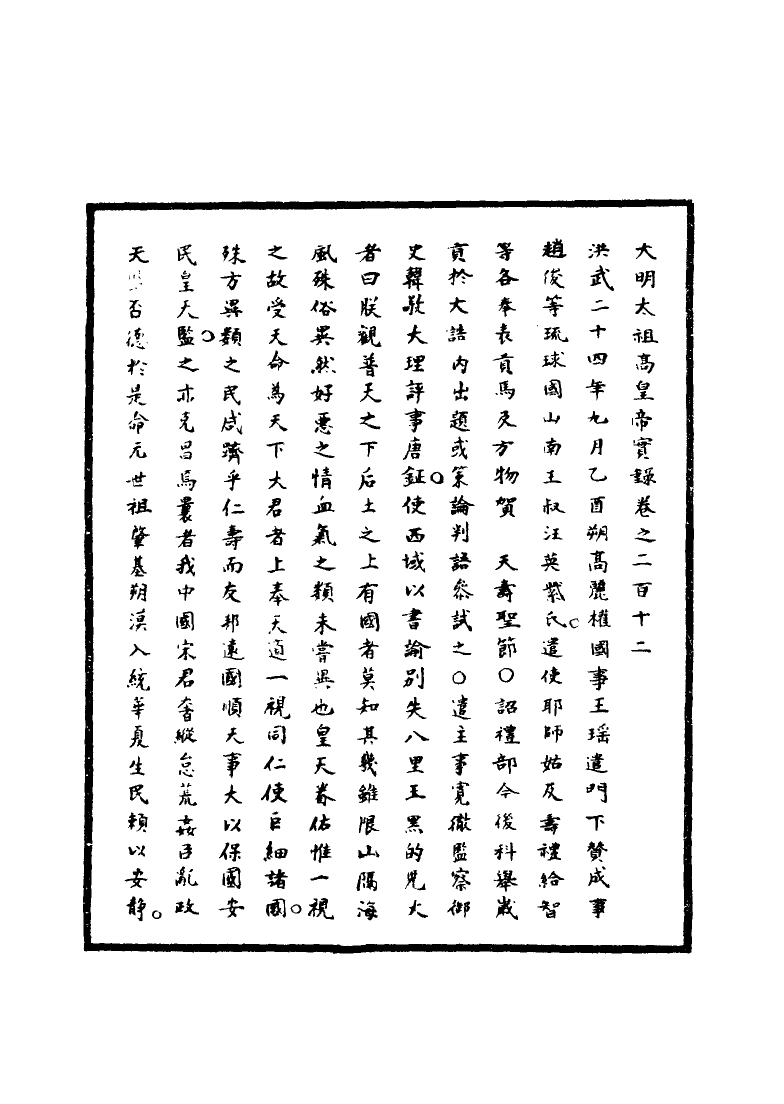 大明太祖高皇帝實錄卷之二百十二
洪武二十四年九月乙酉朔高麗權國事王瑤遣門下贊成事
趙俊等琉球國山南王叔汪英紫氏遣使耶師姑及壽禮給智
等各奉表貢馬及方物賀　天壽聖節○詔禮部今後科舉歲
貢於大誥內出題或策論判語參試之○遣主事寬徹監察御
史韓敬大理評事唐鉦使西域以書諭別失八里王黑的兒火
者曰朕觀普天之下后土之上有國者莫知其幾雖限山隔海
風殊俗異然好惡之情血氣之類未嘗異也皇天眷佑惟一視
之故受天命為天下大君者上奉天道一視同仁使巨細諸國
殊方異類之民咸躋乎仁壽而友邦遠國順天事大以保國安
民皇天監之亦克昌焉曩者我中國宋君奢縱怠荒姦臣亂政
天監否德於是命元世祖肇基朔漠入統華夏生民賴以安靜